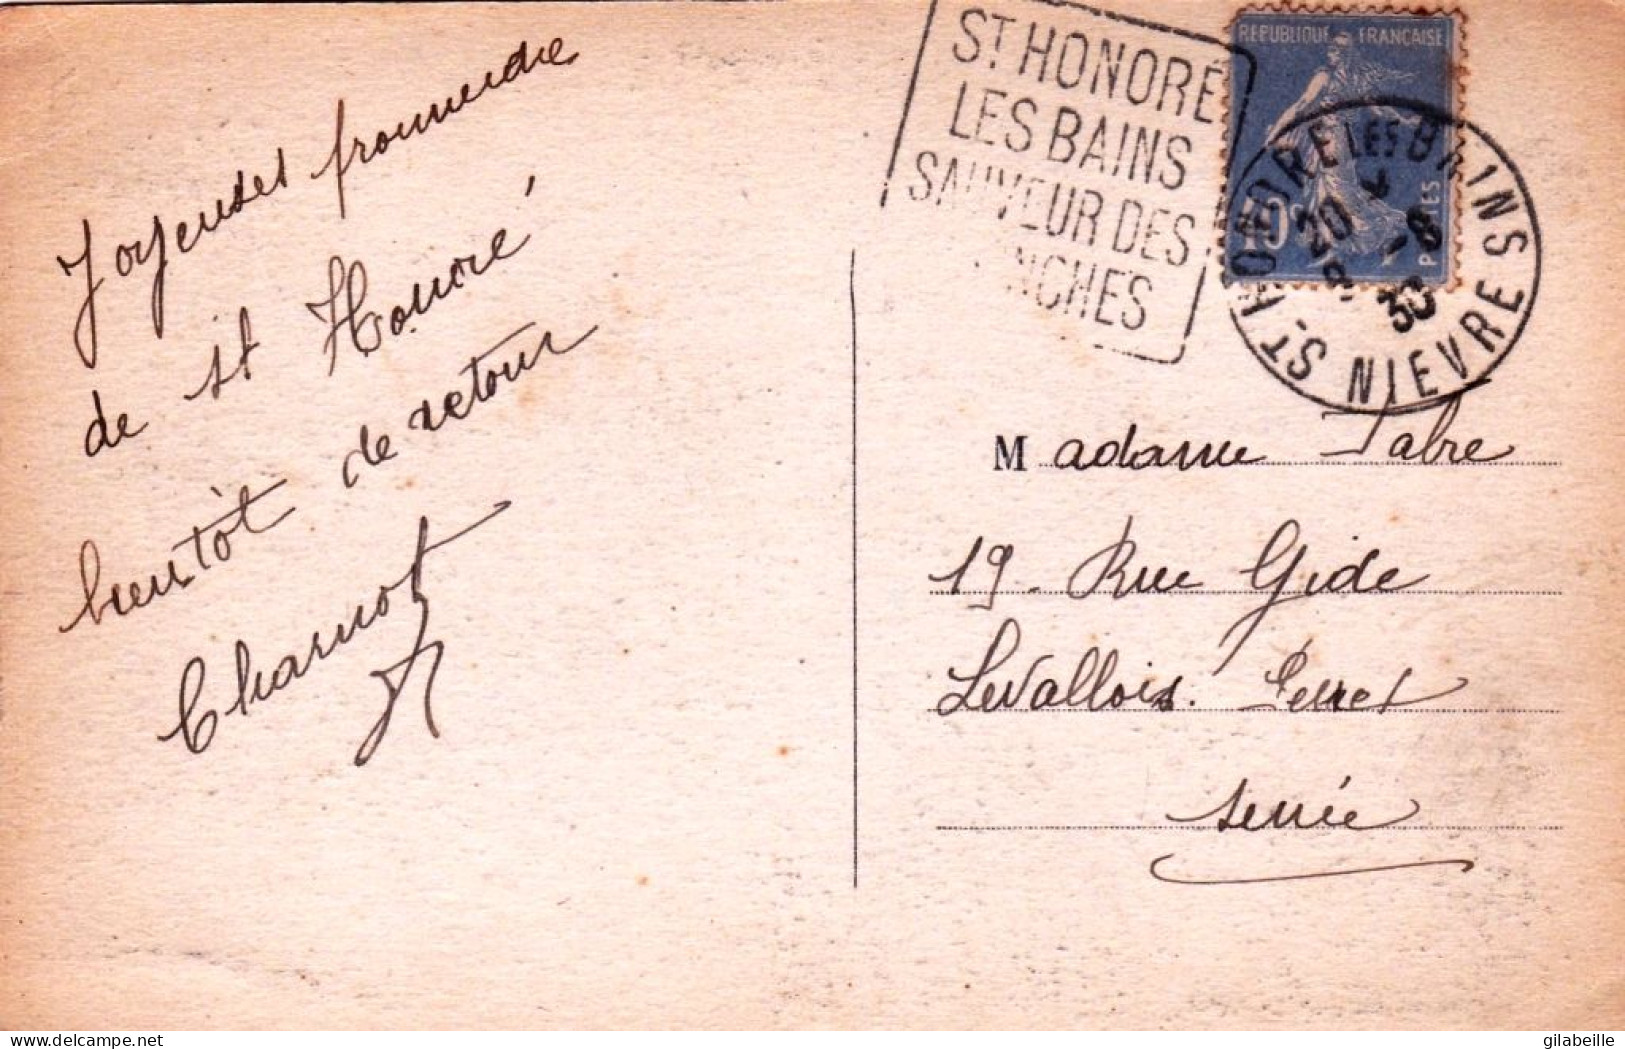 Joyeuses promenade
de st Honoré
bientôt de retour
Charnot
ST HONORÉ
LES BAINS
SAUVEUR DES
NCHES
REPUBLIQUE FRANÇAISE
10c
POSTES
ST HONORE LES BAINS
20
-8
30
NIEVRE
Madame Fabre
19. Rue Gide
Levallois. Perret
Seine
delcampe.net
gilabeille